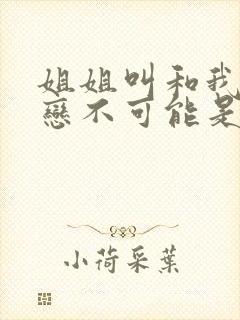 姐姐叫和我
戀不可能是
小荷采葉